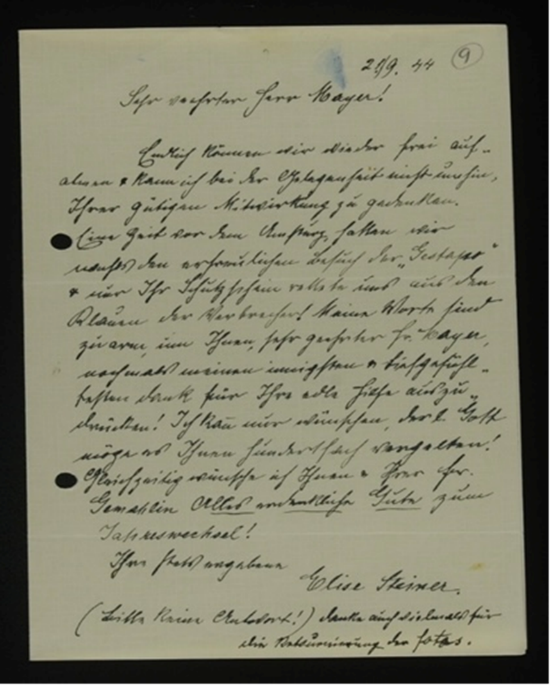 20/9. 44 9
Sehr verehrter Herr Mayer!
Endlich können wir wieder frei auf-
atmen & kann ich bei der Gelegenheit nicht umhin,
Ihrer gütigen Mitwirkung zu gedenken.
Eine Zeit vor dem Umsturz hatten wir
nachts den erfreulichen Besuch der "Gestapo"
& nur Ihr Schutzschein rettete uns aus den
Klauen der Verbrecher! Meine Worte sind
zu arm, um Ihnen, sehr geehrter Hr. Mayer,
nochmals meinen innigsten & tiefgefühl-
testen Dank für Ihre edle Hilfe auszu-
drücken! Ich kann nur wünschen, der l. Gott
möge es Ihnen hundertfach vergelten!
Gleichzeitig wünsche ich Ihnen & Ihrer Fr.
Gemahlin Alles erdenkliche Gute zum
Jahreswechsel!
Ihre stets ergebene
Elise Steiner.
(Bitte keine Antwort!) danke auch vielmals für
die Retournierung der Fotos.